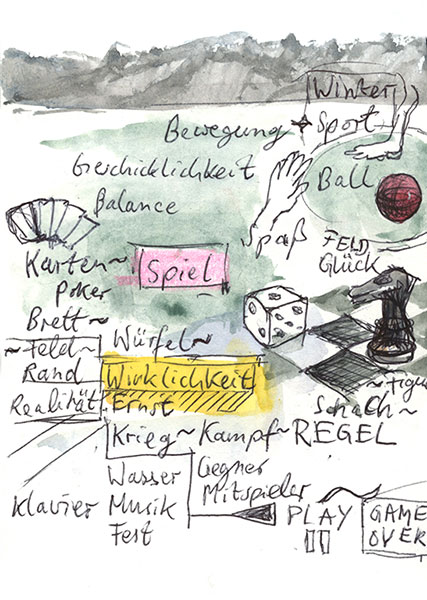 Winter
Bewegung Sport
Geschicklichkeit
Ball
Balance
Spaß
FELD
Glück
Karten~
Spiel
Poker
Brett~
Würfel~
~Feld~
Rand
Wirklichkeit
~Figur
Realität
Ernst
Schach~
Krieg~ Kampf~ REGEL
Wasser
Gegner
Mitspieler
Klavier Musik
PLAY
GAME
OVER
Fest